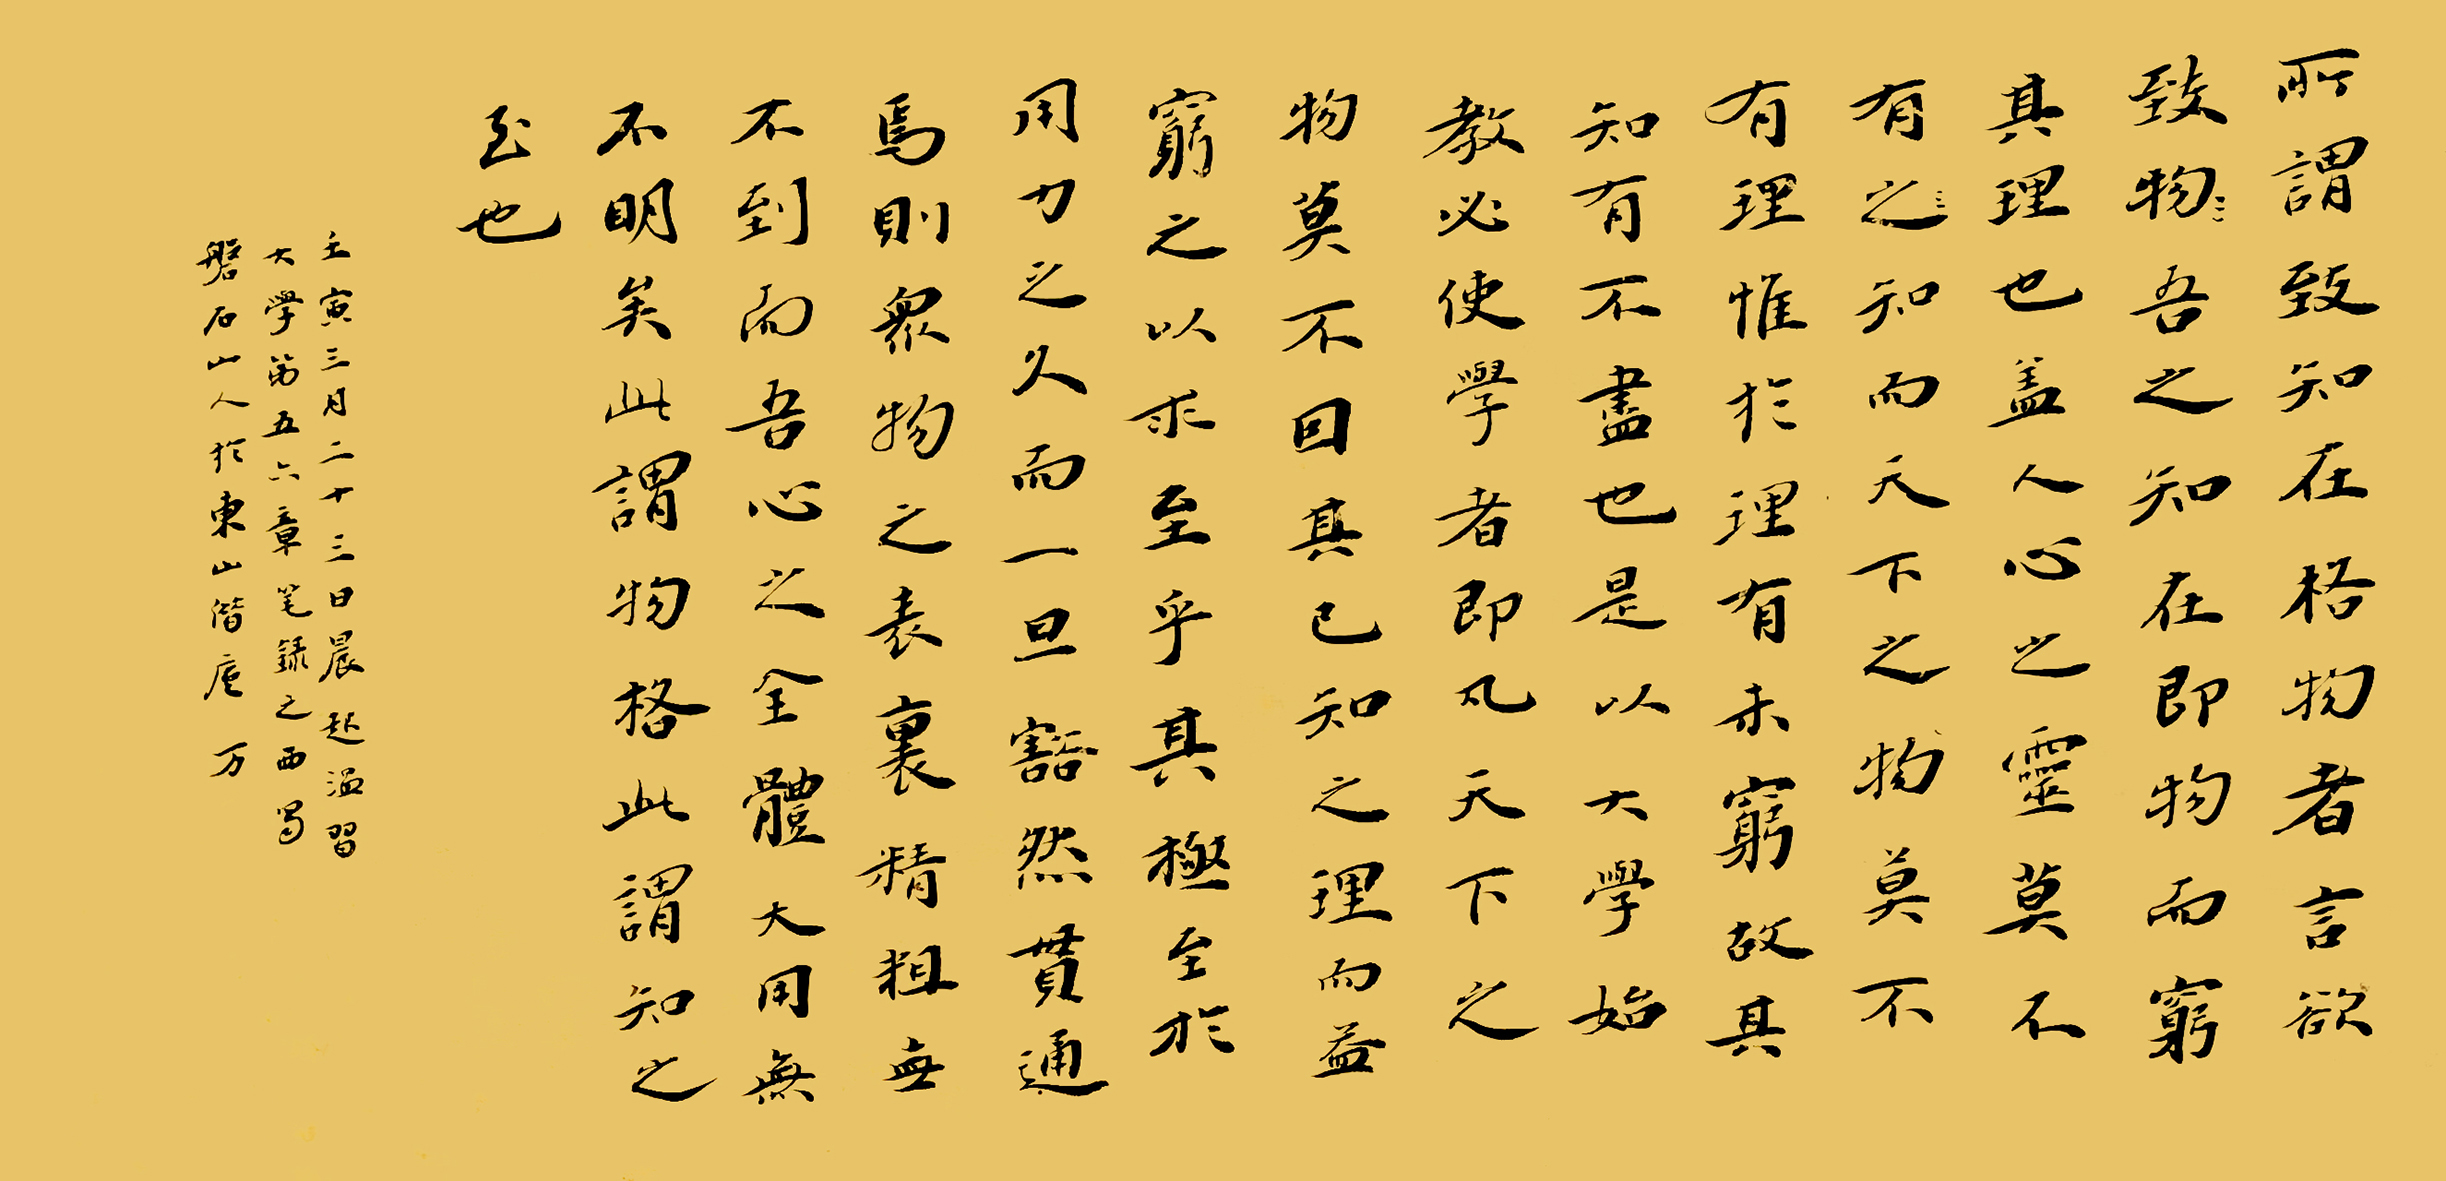 所謂致知在格物者言欲
致物〻吾之知在即物而窮
其理也盖人心之靈莫不
有之〻知而天下之物莫不
有理惟於理有未窮故其
知有不盡也是以大學始
教必使學者即凡天下之
物莫不因其已知之理而益
窮之以求至乎其極至於
用力之久而一旦豁然貫通
焉則衆物之表裏精粗無
不到而吾心之全體大用無
不明矣此謂物格此謂知之
至也
壬寅三月二十三日晨起温習
大學第五六章笔録之西蜀
磐石山人於東山偕庐 万